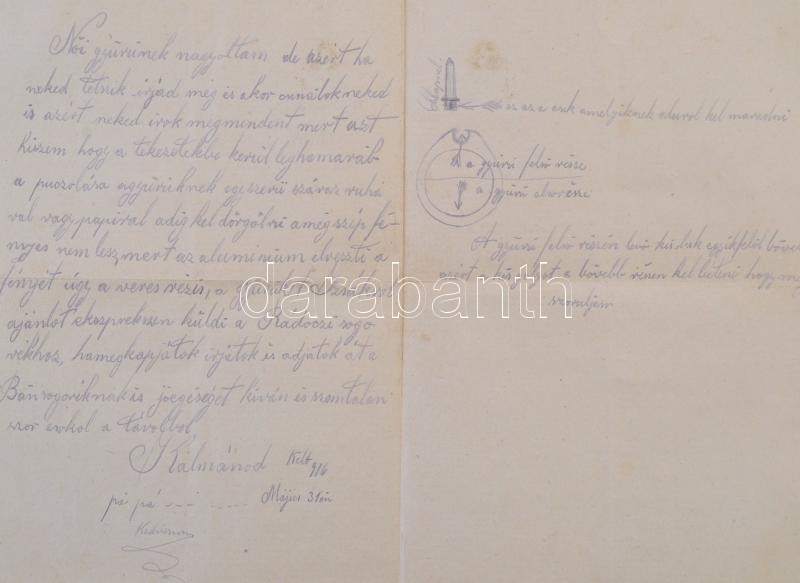 Női gyürünek nagyoltam de azért ha
neked tetszik irjad meg és akor csinálok neked
is azért neked irok megmindent mert azt
hiszem hogy a tekezetekbe kerül leghamaráb
a puczolása a gyüriknek egyszerü száraz ruhá
val vagy papiral adig kel dörgölni amég szép fé-
nyes nem lesz mert az aluminium elveszti a
fényét úgy a veres rézis, a
ajánlot ekszpreksen küldi a Radóczi sogo-
rékhoz, hamegkapjátok irjátok is adjátok át a
Bán sogoréknak is jóegéségét kiván és számtalan
szor csokol a távolbol
Kálmánod Kelt 916
pá pá Május 31én
Kedvesem
ez az a csuk amelyiknek alurol kel maradni
a gyürü felső része
a gyürü alsó része
A gyürü felső részén levő kisluk egyikfelöl bőveb
azért a bővebb részen kel hogy meg
szoruljon
darabanth